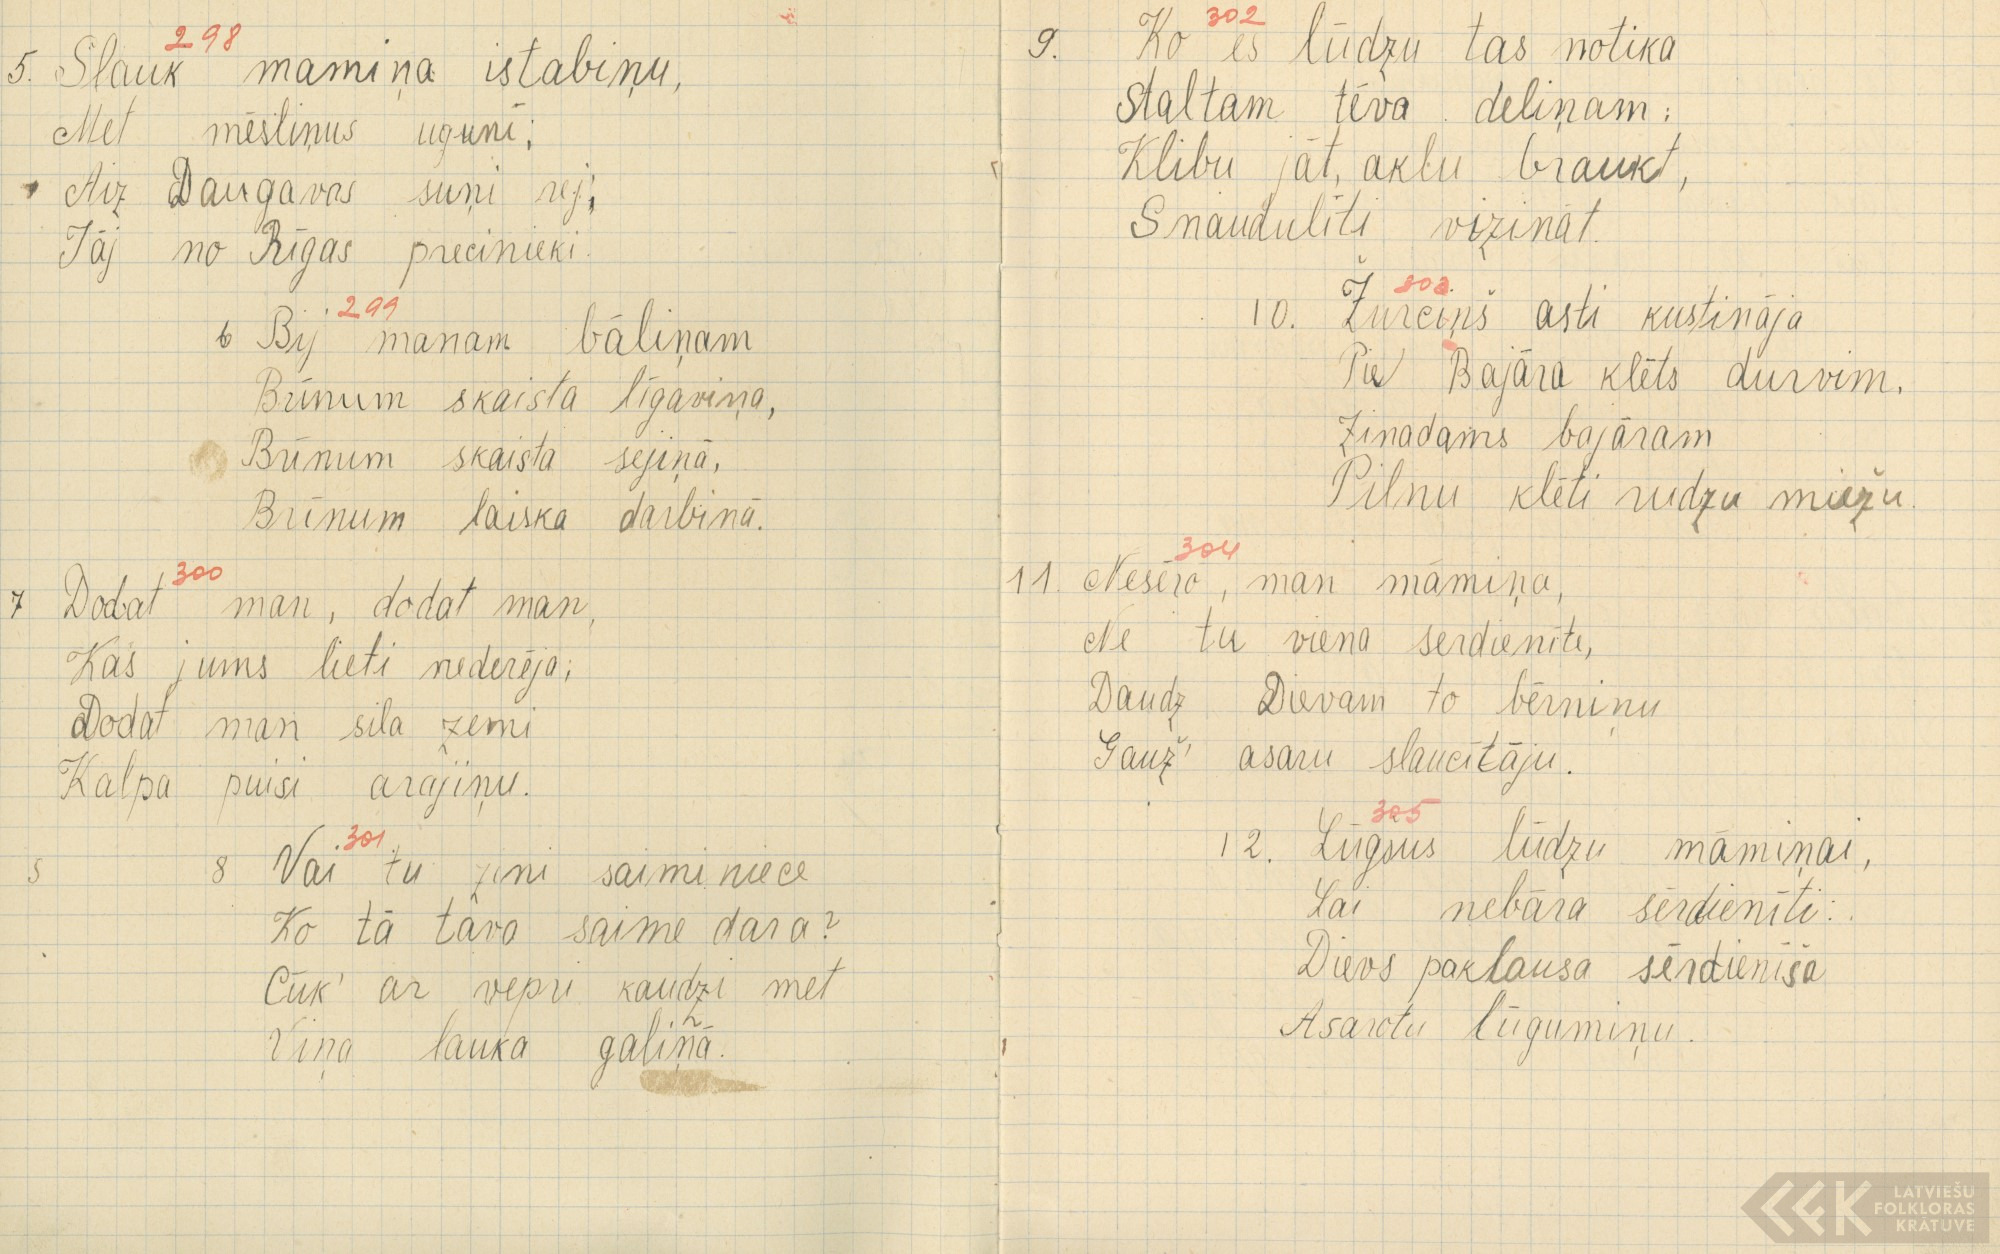 298
5. Slauk mamiņa istabiņu,
Met mēsliņus ugunī;
Aiz Daugavas suņi rej;
Jāj no Rīgas precinieki.
299
6 Bij manam bāliņam
Brīnum skaista līgaviņa,
Brīnum skaista sejiņā,
Brīnum laiska darbiņā.
300
7 Dodat man, dodat man,
Kas jums lieti nederēja;
Dodat man sila zemi
Kalpa puisi arājiņu.
301
8 Vai tu zini saiminiece
Ko tā tāva saime dara?
Cūk' ar vepri kaudzi met
Viņa lauka galiņā.
302
9. Ko es lūdzu tas notika
Staltam tēva deliņam:
Klibu jāt, aklu braukt,
Snaudulīti vizināt.
303.
10. Žurciņš asti kustināja
Pie Bajāra klēts durvim.
Zinadams bajāram
Pilnu klēti rudzu miežu.
304
11. Nesēro, man māmiņa,
Ne tu viena serdienīte,
Daudz Dievam to bērniņu
Gauž' asaru slaucītāju.
305
12. Lūgšus lūdzu māmiņai,
Lai nebāra sērdienīti:
Dievs paklausa sērdienīša
Asarotu lūgumiņu.
LATVIEŠU
FOLKLORAS
KRĀTUVE